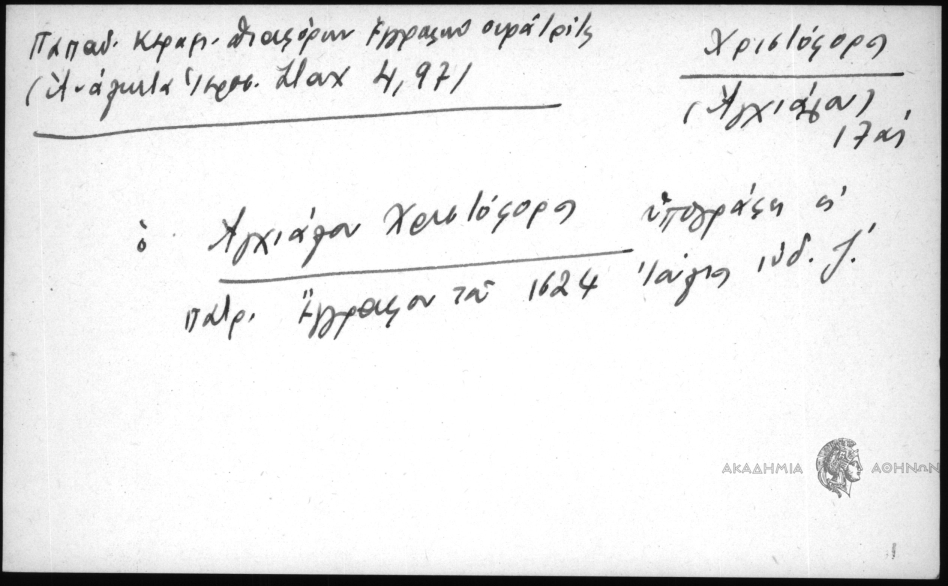 Παπαδ. Κεραμ. Διαφόρων Ἐγγράφων
(Ἀνάλεκτα Ἱεροσ. Σταχ 4,97)
Χριστόφορος
(Ἀγχιάλου)
17ος
ὁ Ἀγχιάλου Χριστόφορος ὑπογράφει εἰς
πατρ. Ἔγγραφον τοῦ 1624 ἰνδ. ζ.
ΑΚΑΔΗΜΙΑ ΑΘΗΝΩΝ